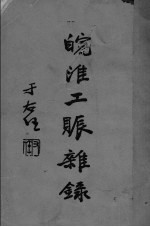 皖淮工賑雜錄
于右任